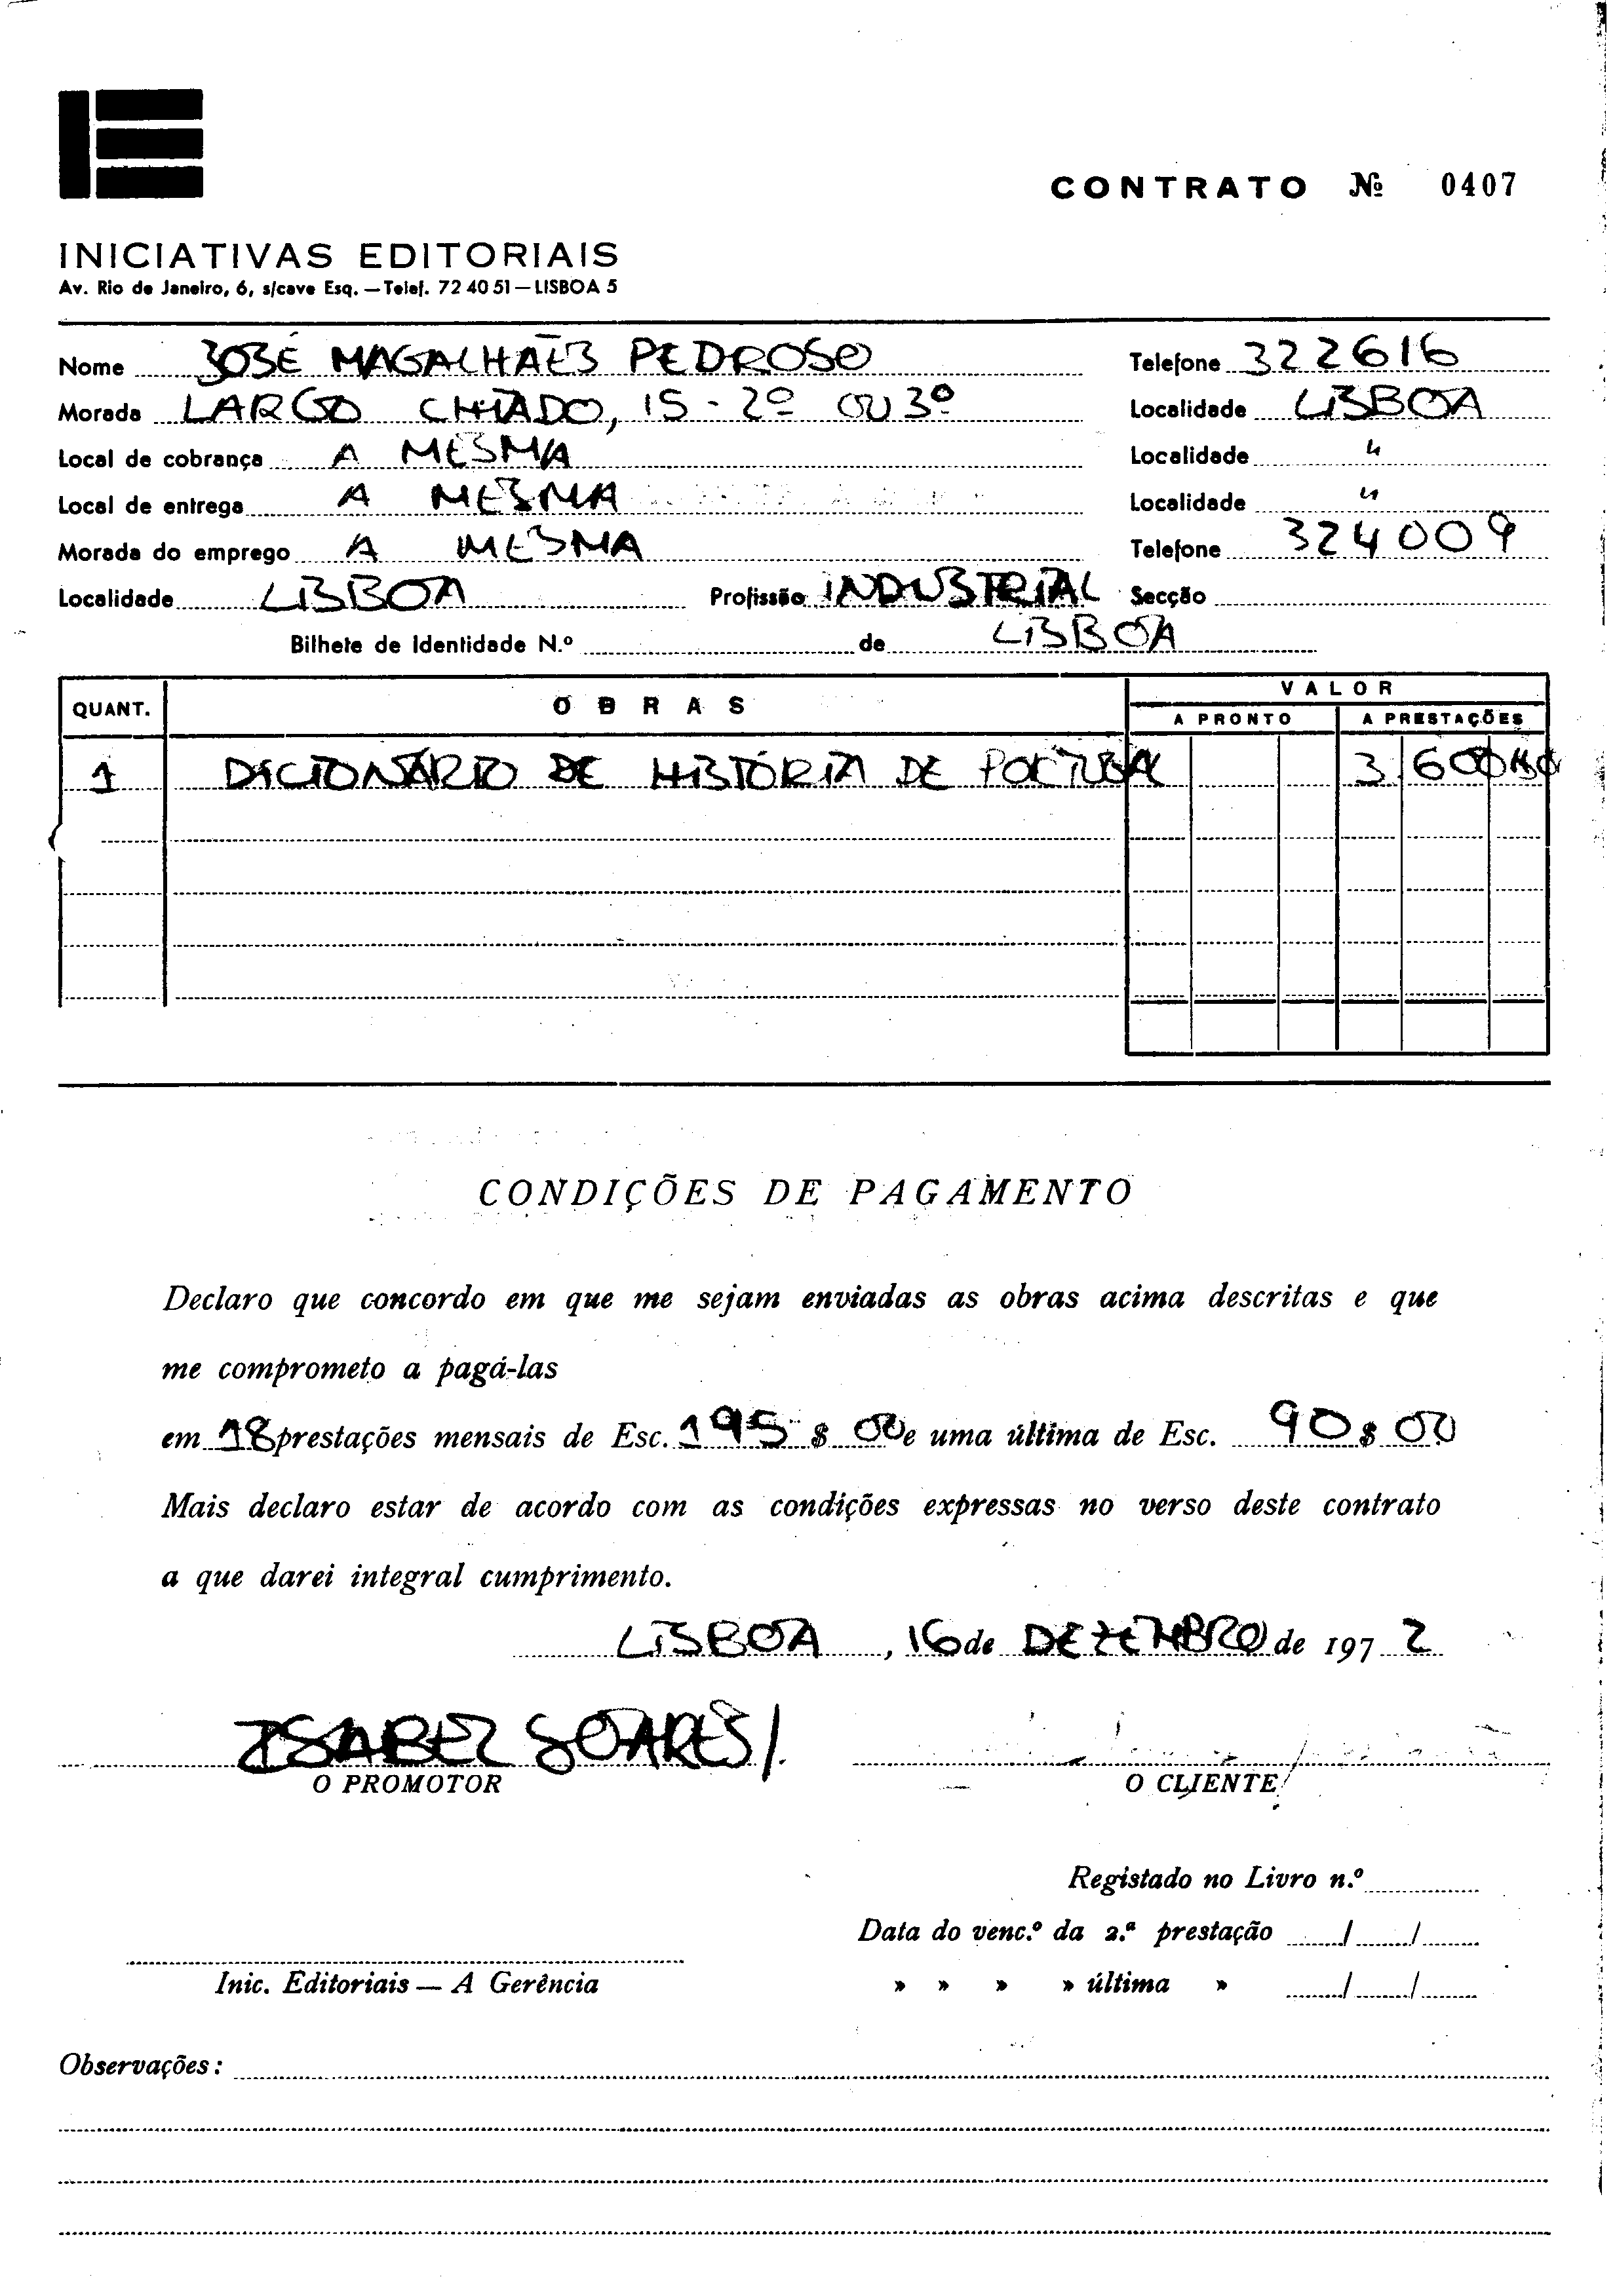 CONTRATO Nº 0407
INICIATIVAS EDITORIAIS
Av. Rio de Janeiro, 6, s/cave Esq. — Telef. 72 40 51 — LISBOA 5
Nome JOSÉ MAGALHÃES PEDROSO Telefone 322616
Morada LARGO CHIADO, 15-2º OU 3º Localidade LISBOA
Local de cobrança A MESMA Localidade "
Local de entrega A MESMA Localidade "
Morada do emprego A MESMA Telefone 324009
Localidade LISBOA Profissão INDUSTRIAL Secção
Bilhete de Identidade N.º de LISBOA
QUANT. OBRAS VALOR
A PRONTO A PRESTAÇÕES
1 DICIONÁRIO DE HISTÓRIA DE PORTUGAL 3 600$00
CONDIÇÕES DE PAGAMENTO
Declaro que concordo em que me sejam enviadas as obras acima descritas e que
me comprometo a pagá-las
em 18 prestações mensais de Esc. 195 $ 00 e uma última de Esc. 90 $ 00
Mais declaro estar de acordo com as condições expressas no verso deste contrato
a que darei integral cumprimento.
LISBOA, 16 de DEZEMBRO de 197 2
ISABEL SOARES/.
O PROMOTOR O CLIENTE
Registado no Livro n.º
Data do venc.º da 2.ª prestação / /
Inic. Editoriais — A Gerência » » » » última » / /
Observações: